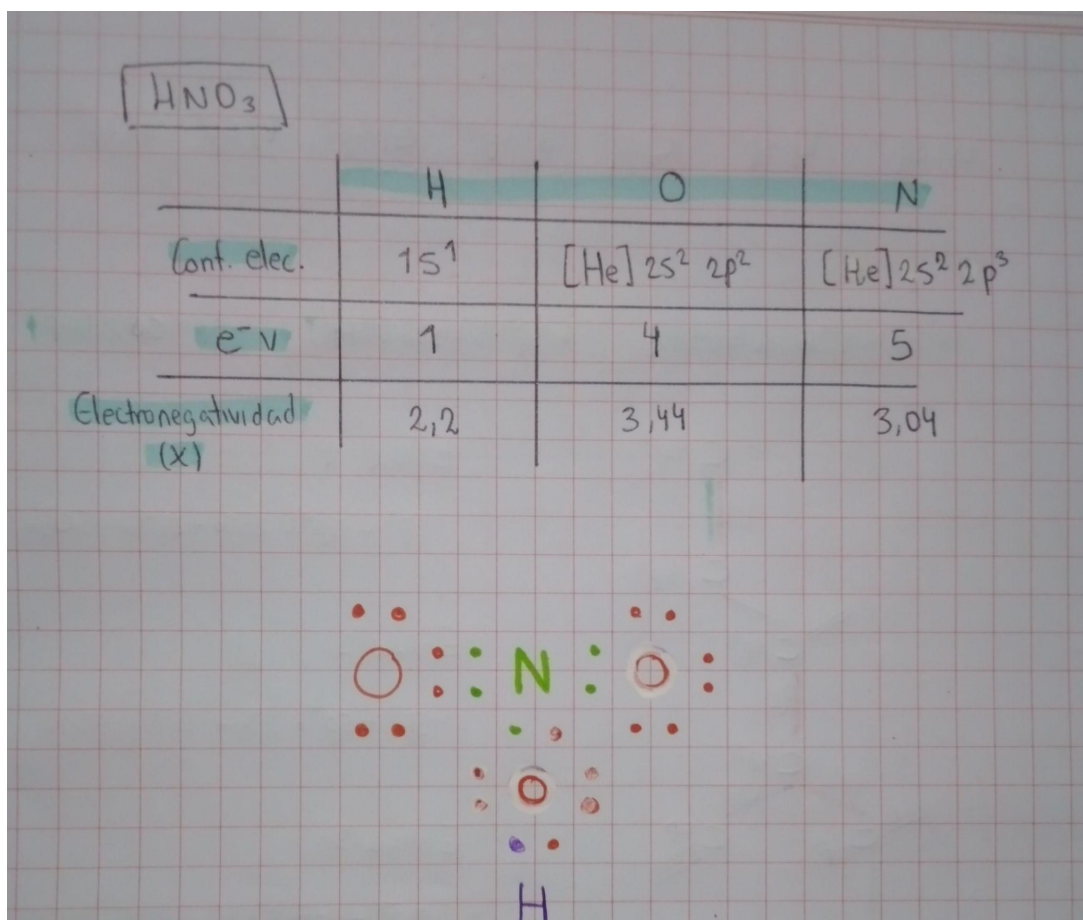 HNO₃
H O N
Conf. elec. 1S¹ [He] 2s² 2p² [He] 2s² 2p³
e⁻v 1 4 5
Electronegatividad 2,2 3,44 3,04
(X)
O N O
O
H